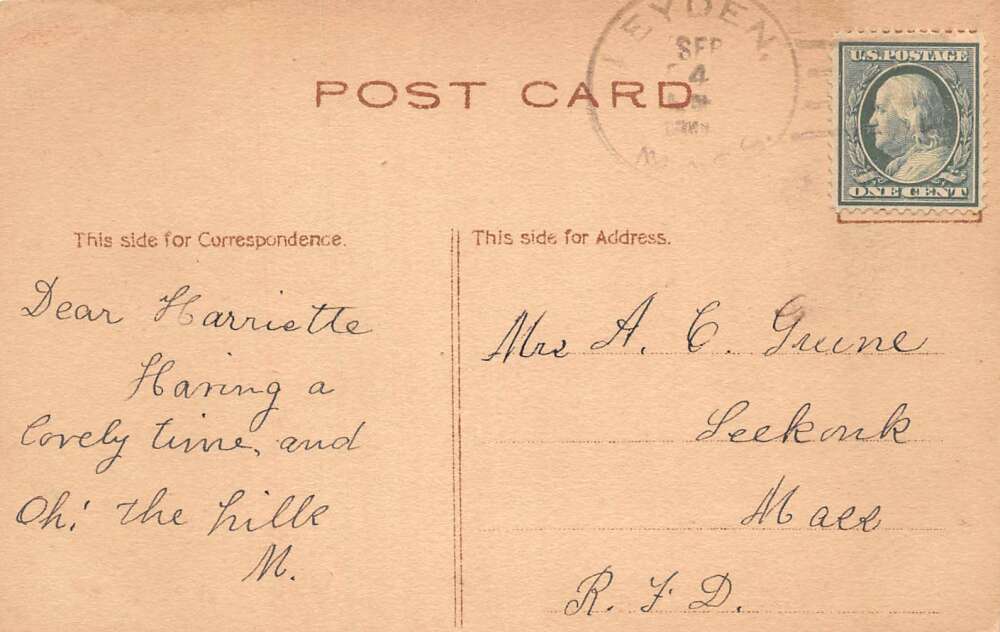 LEYDEN,
SEP
4
MASS.
U.S. POSTAGE
ONE CENT
POST CARD
This side for Correspondence.
This side for Address.
Dear Harriette
Having a
lovely time, and
Oh! the hills
M.
Mrs A. C. Greene
Seekonk
Mass
R. F. D.